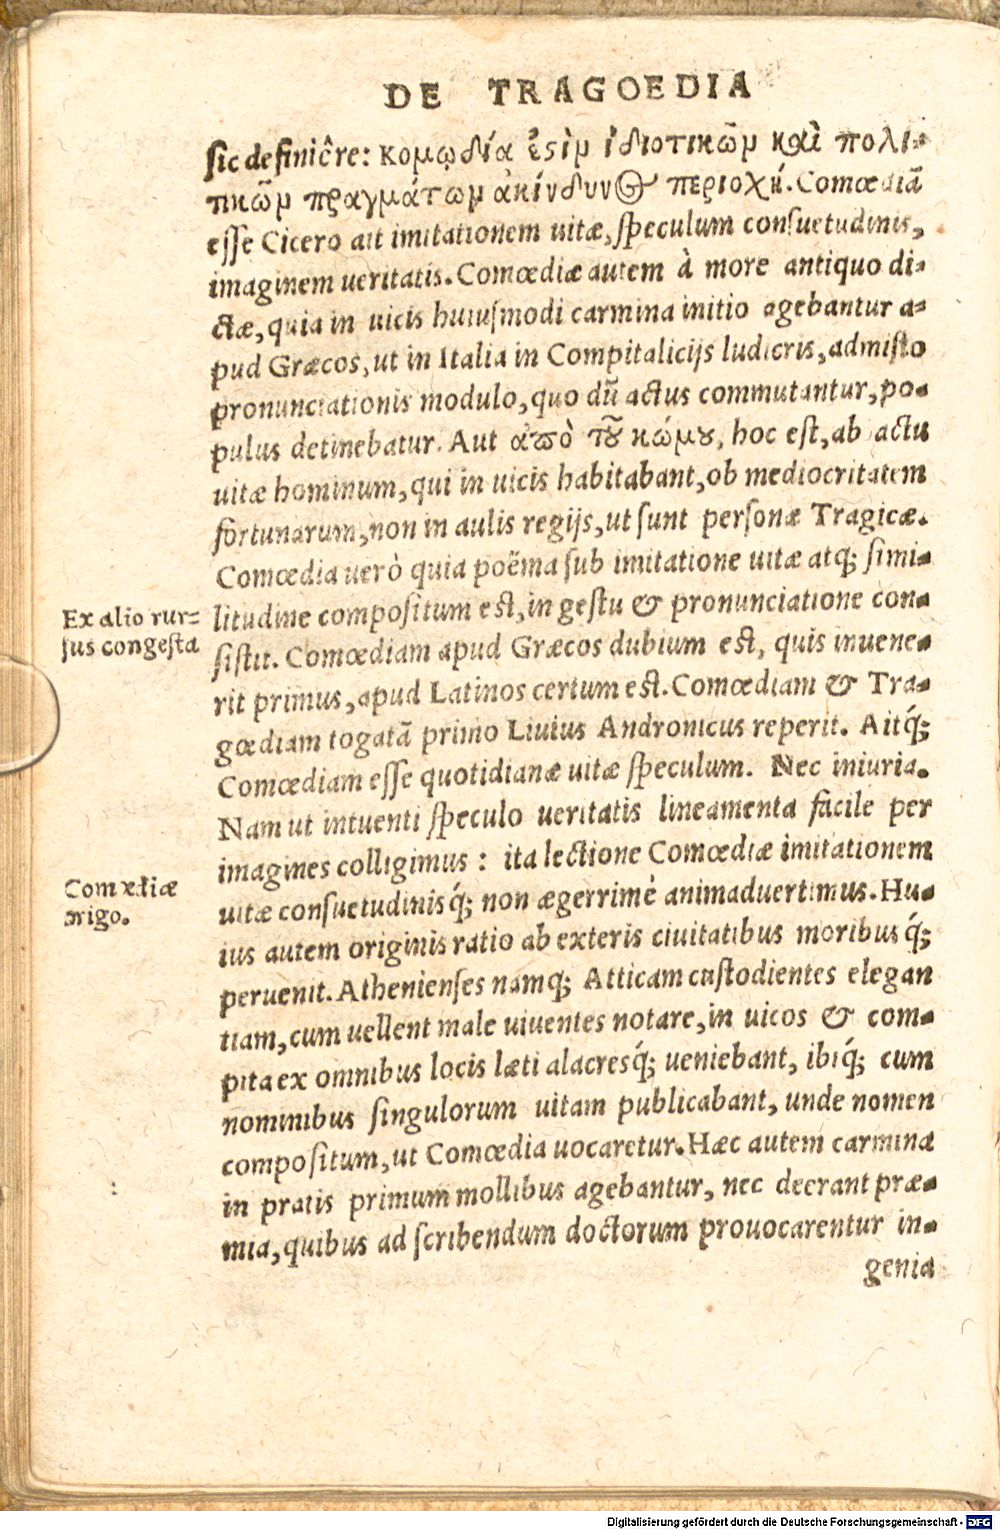 DE TRAGOEDIA
sic definiêre: κομῳδία ἐςὶν ἰδιοτικῶν καὶ πολι-
τικῶν πραγμάτων ἀκίνδυνος περιοχή. Comœdiã
esse Cicero ait imitationem uitæ, speculum consuetudinis,
imaginem ueritatis. Comœdiæ autem à more antiquo di-
ctæ, quia in uicis huiusmodi carmina initio agebantur a-
pud Græcos, ut in Italia in Compitalicijs ludicris, admisto
pronunciationis modulo, quo dũ actus commutantur, po-
pulus detinebatur. Aut ἀπὸ τοῦ κώμου, hoc est, ab actu
uitæ hominum, qui in uicis habitabant, ob mediocritatem
fortunarum, non in aulis regijs, ut sunt personæ Tragicæ.
Comœdia uerò quia poëma sub imitatione uitæ atq; simi-
Ex alio rur-
sus congesta
litudine compositum est, in gestu & pronunciatione con-
sistit. Comœdiam apud Græcos dubium est, quis inuene-
rit primus, apud Latinos certum est. Comœdiam & Tra-
gœdiam togatã primo Liuius Andronicus reperit. Aitq́;
Comœdiam esse quotidianæ uitæ speculum. Nec iniuria.
Nam ut intuenti speculo ueritatis lineamenta facile per
imagines colligimus: ita lectione Comœdiæ imitationem
Comœdiæ
origo.
uitæ consuetudinisq́; non ægerrimè animaduertimus. Hu-
ius autem originis ratio ab exteris ciuitatibus moribusq́;
peruenit. Athenienses namq; Atticam custodientes elegan
tiam, cum uellent male uiuentes notare, in uicos & com-
pita ex omnibus locis læti alacresq́; ueniebant, ibiq́; cum
nominibus singulorum uitam publicabant, unde nomen
compositum, ut Comœdia uocaretur. Hæc autem carmina
in pratis primum mollibus agebantur, nec deerant præ-
mia, quibus ad scribendum doctorum prouocarentur in-
genia
Digitalisierung gefördert durch die Deutsche Forschungsgemeinschaft - DFG